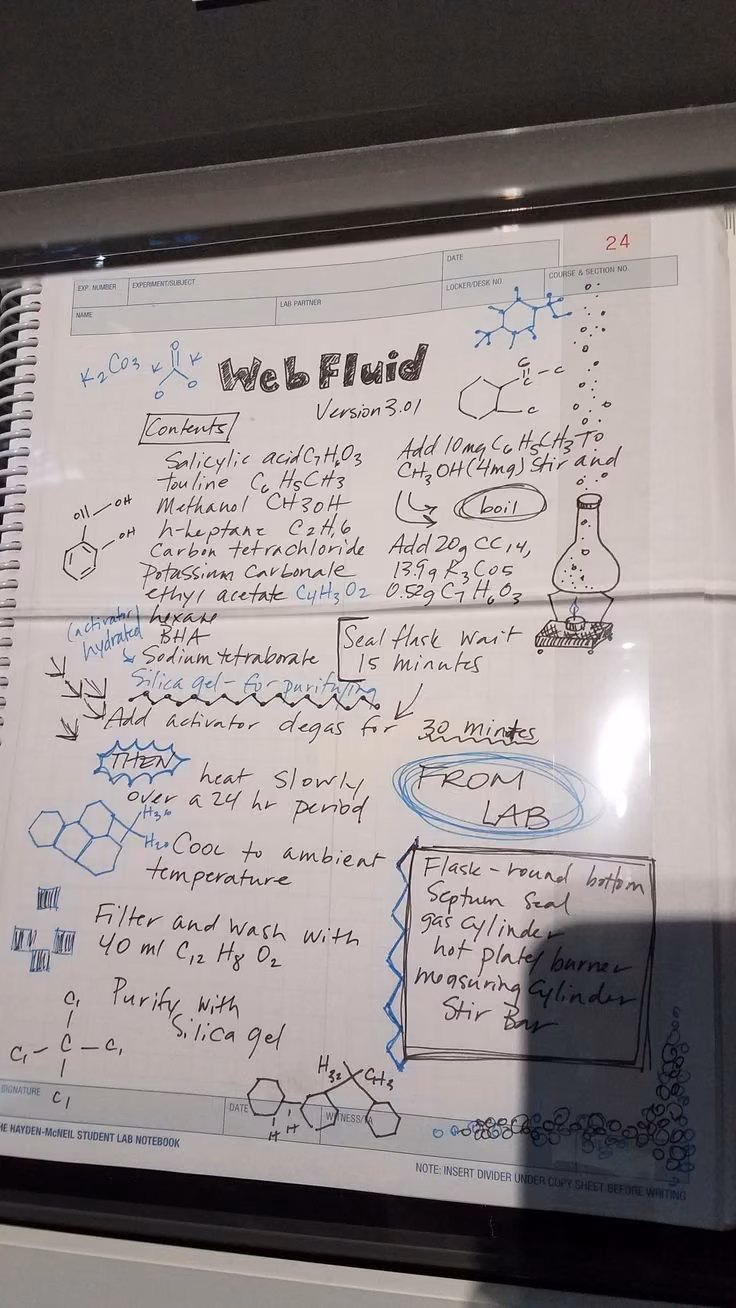 24
EXP. NUMBER
EXPERIMENT/SUBJECT
DATE
NAME
LAB PARTNER
LOCKER/DESK NO.
COURSE & SECTION NO.
K2CO3
K O K
O O
Web Fluid
Version 3.01
Contents
Salicylic acid C7H6O3
touline C6H5CH3
Methanol CH3OH
h-heptane C2H,6
Carbon tetrachloride
Potassium Carbonate
ethyl acetate C4H3O2
hexane
BHA
(activator)
hydrated
Sodium tetraborate
Silica gel - for purifying
OH
OH
C - C
C
Add 10mg C6H5CH3 To
CH3OH (4mg) Stir and
boil
Add 20g CC14,
13.9g K2CO5
0.52g C7H6O3
Seal flask wait
15 minutes
Add activator degas for 30 mintes
THEN heat slowly
over a 24 hr period
Cool to ambient
temperature
Filter and wash with
40 ml C12 H8 O2
Purify with
Silica gel
FROM
LAB
Flask - round bottom
Septum Seal
gas cylinder
hot plate/burner
measuring cylinder
Stir Bar
C,
C, - C - C,
C,
H32
CH3
H
H
SIGNATURE
DATE
WITNESS/TA
THE HAYDEN-McNEIL STUDENT LAB NOTEBOOK
NOTE: INSERT DIVIDER UNDER COPY SHEET BEFORE WRITING